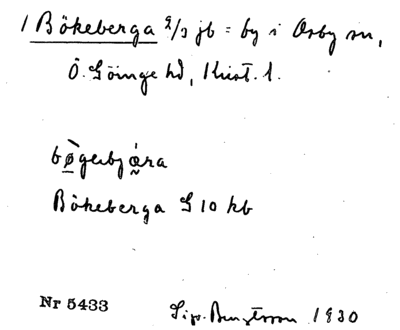 1 Bökeberga 2/3 jb = by i Osby sn,
Ö. Göinge hd, Krist. l.
bø̀gebjára
Bökeberga G 10 kb
Nr 5433 Sig. Bengtsson 1930